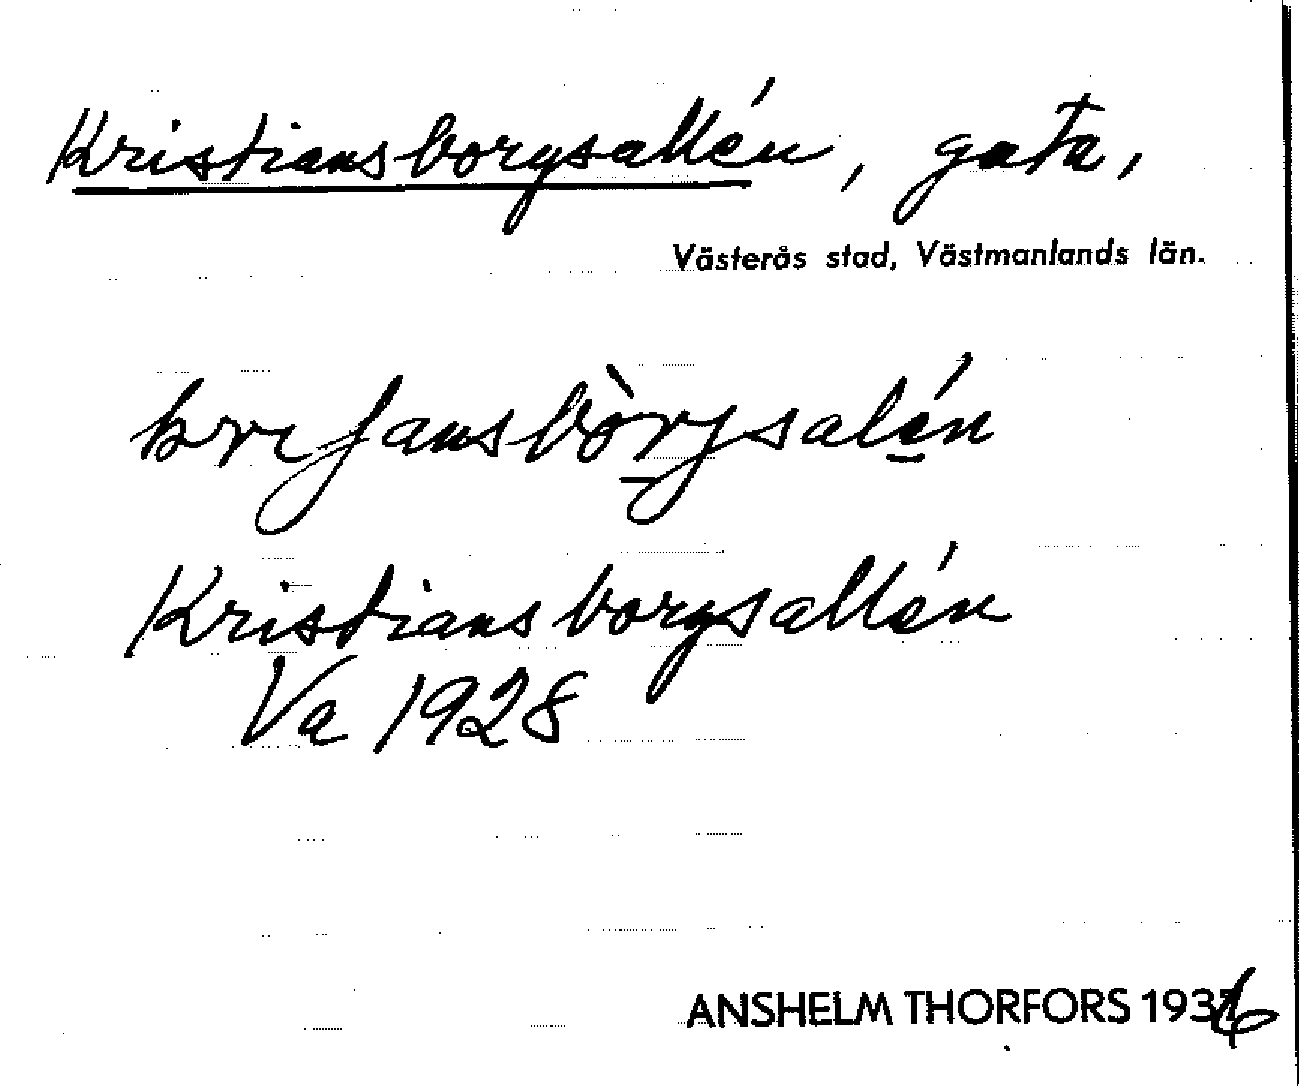 Kristiansborgsallén, gata,
Västerås stad, Västmanlands län.
krıʃansbòrjsalén
Kristiansborgsallén
Va 1928
ANSHELM THORFORS 1936